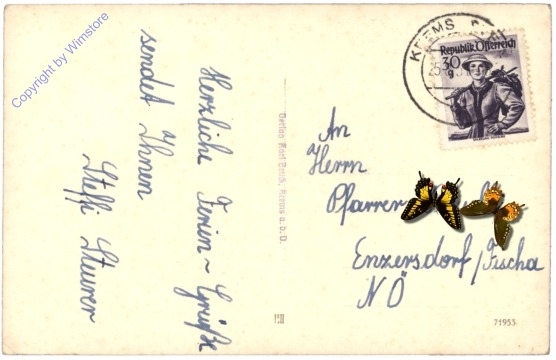 Copyright by Wimstore
Herzliche Ferien-Grüße
sendet Ihnen
Steffi Steurer
Verlag Karl Buck, Krems a. d. D.
KREMS
Republik Österreich
30
g
An
Herrn
Pfarrer
Enzersdorf/Fischa
NÖ
71953